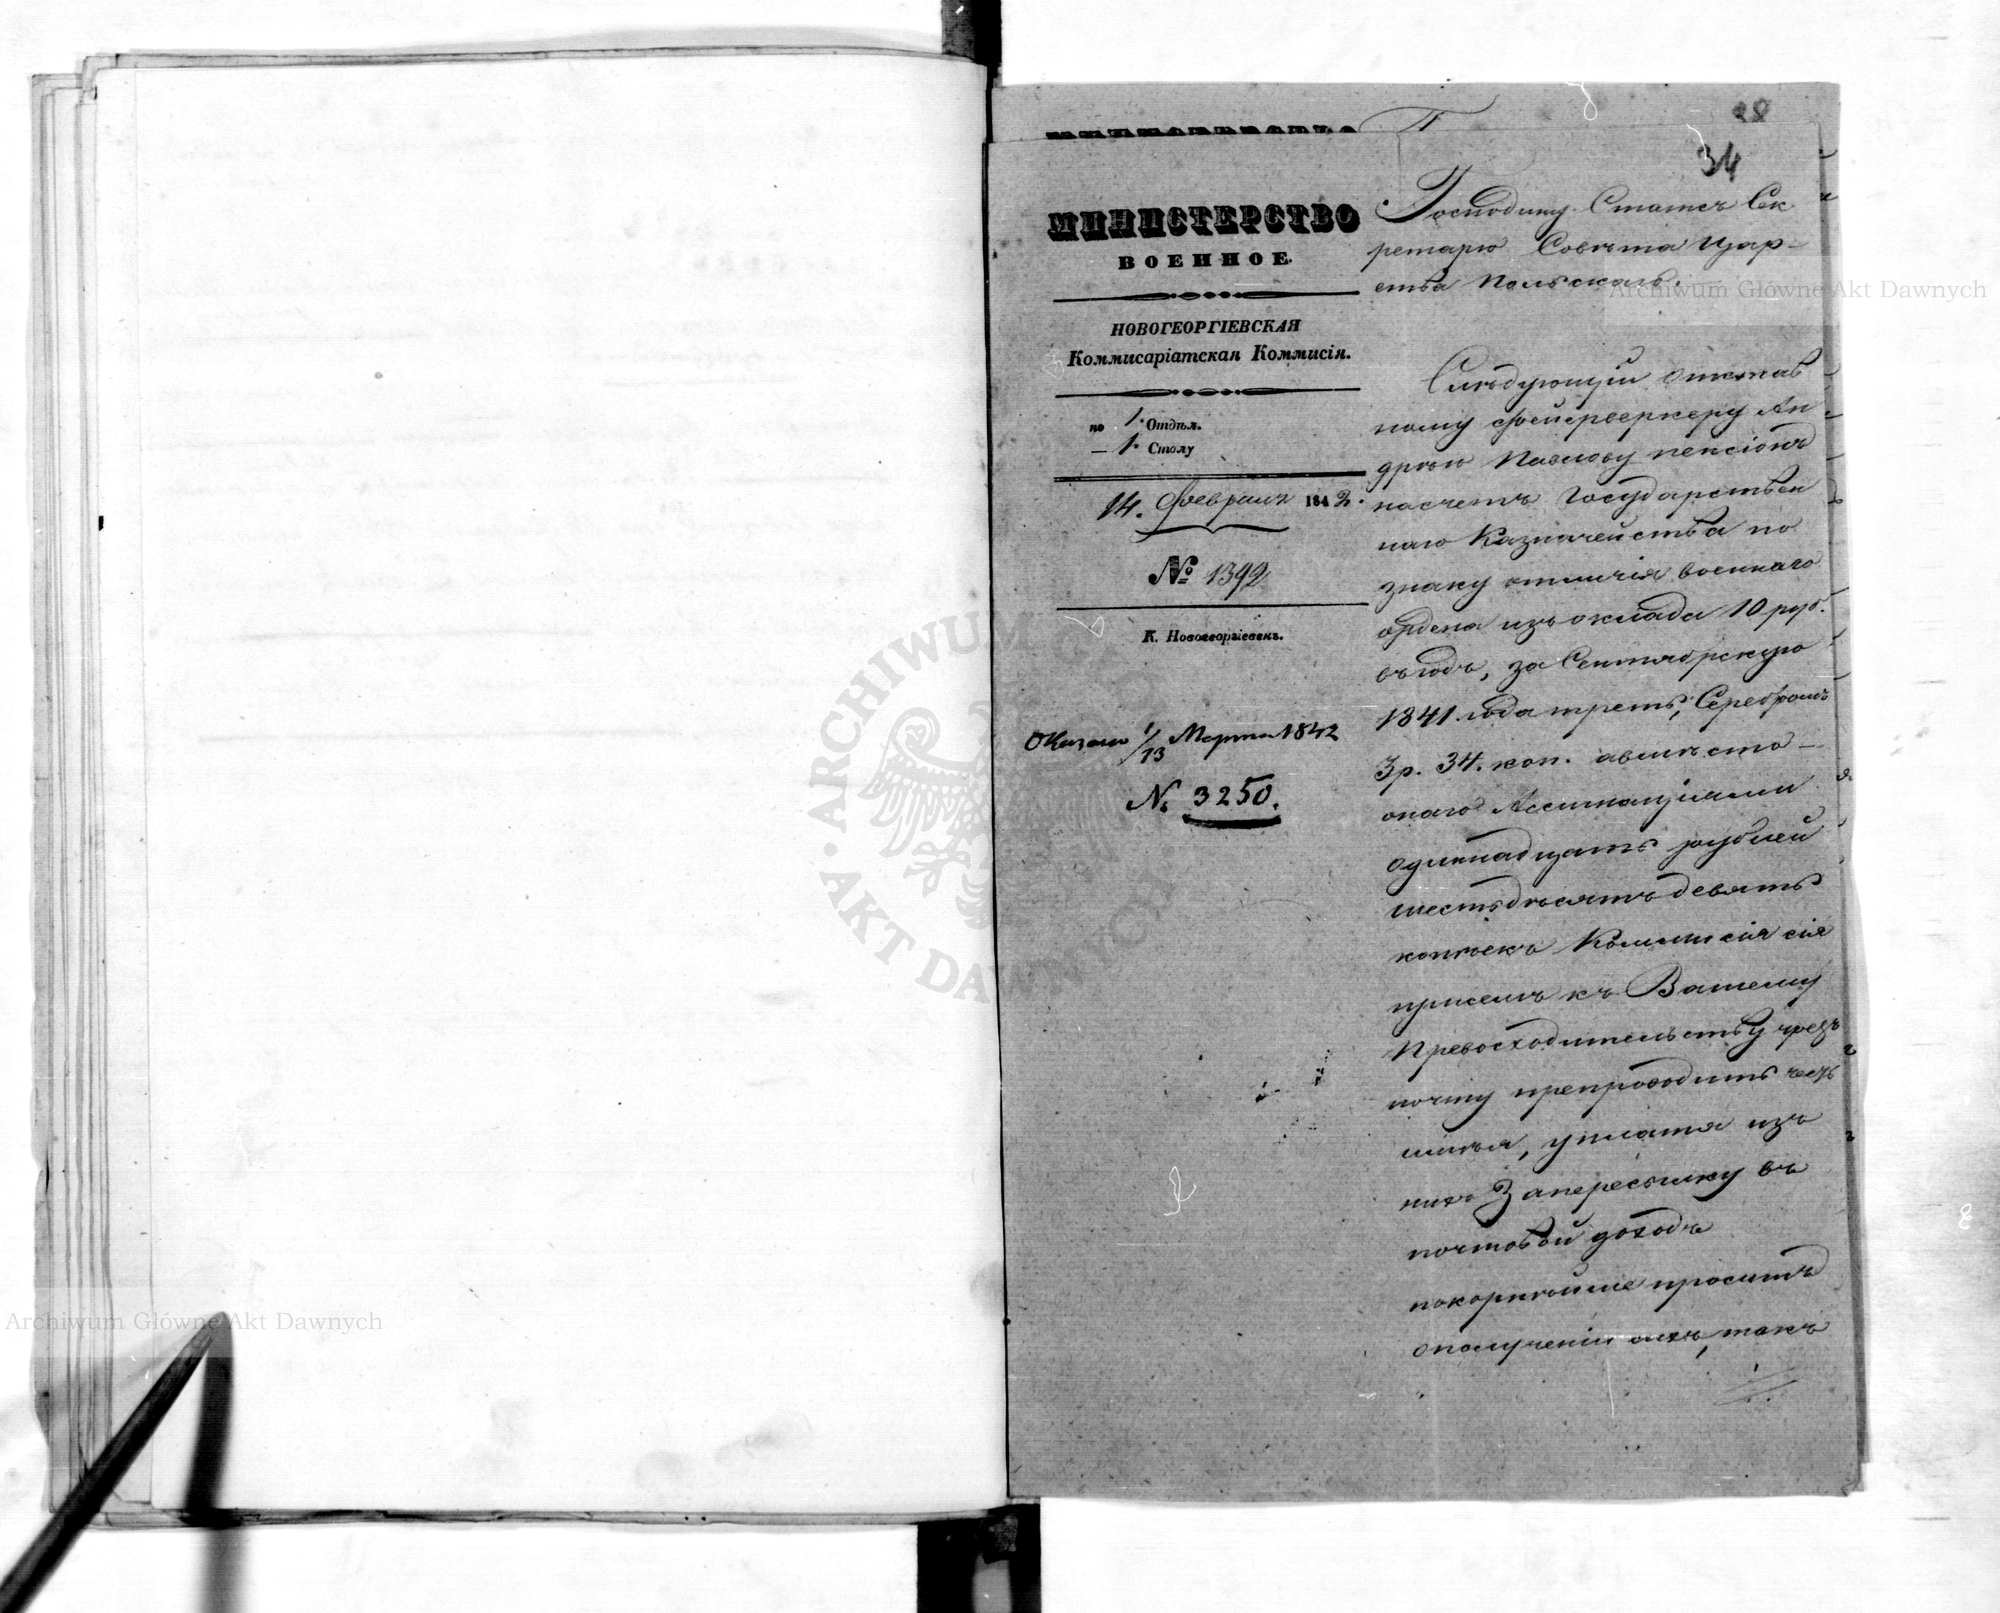 38
34
МИНИСТЕРСТВО
ВОЕННОЕ.
НОВОГЕОРГІЕВСКАЯ
Коммисаріатская Коммисія.
по 1. Отдѣл.
— 1. Столу
14. Февраля 1842.
№ 1392
К. Новогеоргіевскъ.
1/13 Марта 1842
№ 3250.
Господину Статсъ Сек
ретарю Совѣта Цар-
ства Польскаго.
Слѣдующій отстав
ному фейерверкеру Ан
дрѣю Павлову пенсіонъ
насчетъ Государствен
наго Казначейства по
знаку отличія военнаго
ордена изъ оклада 10 руб.
въ годъ, за Сентябрскую
1841 года треть, Серебромъ
3 р. 34. коп. авмѣсто-
онаго Ассигнаціями
одиннадцать рублей
шестьдѣсятъ девять
копѣекъ Коммисія сія
присемъ къ Вашему
Превосходительству чрезъ
почту препроводить честь
имѣя, уплатя изъ
нихъ Запересылку въ
почтовой доходъ
покорнѣйше проситъ
ополученіи ихъ, такъ
Archiwum Główne Akt Dawnych
Archiwum Główne Akt Dawnych
ARCHIWUM GŁÓWNE AKT DAWNYCH